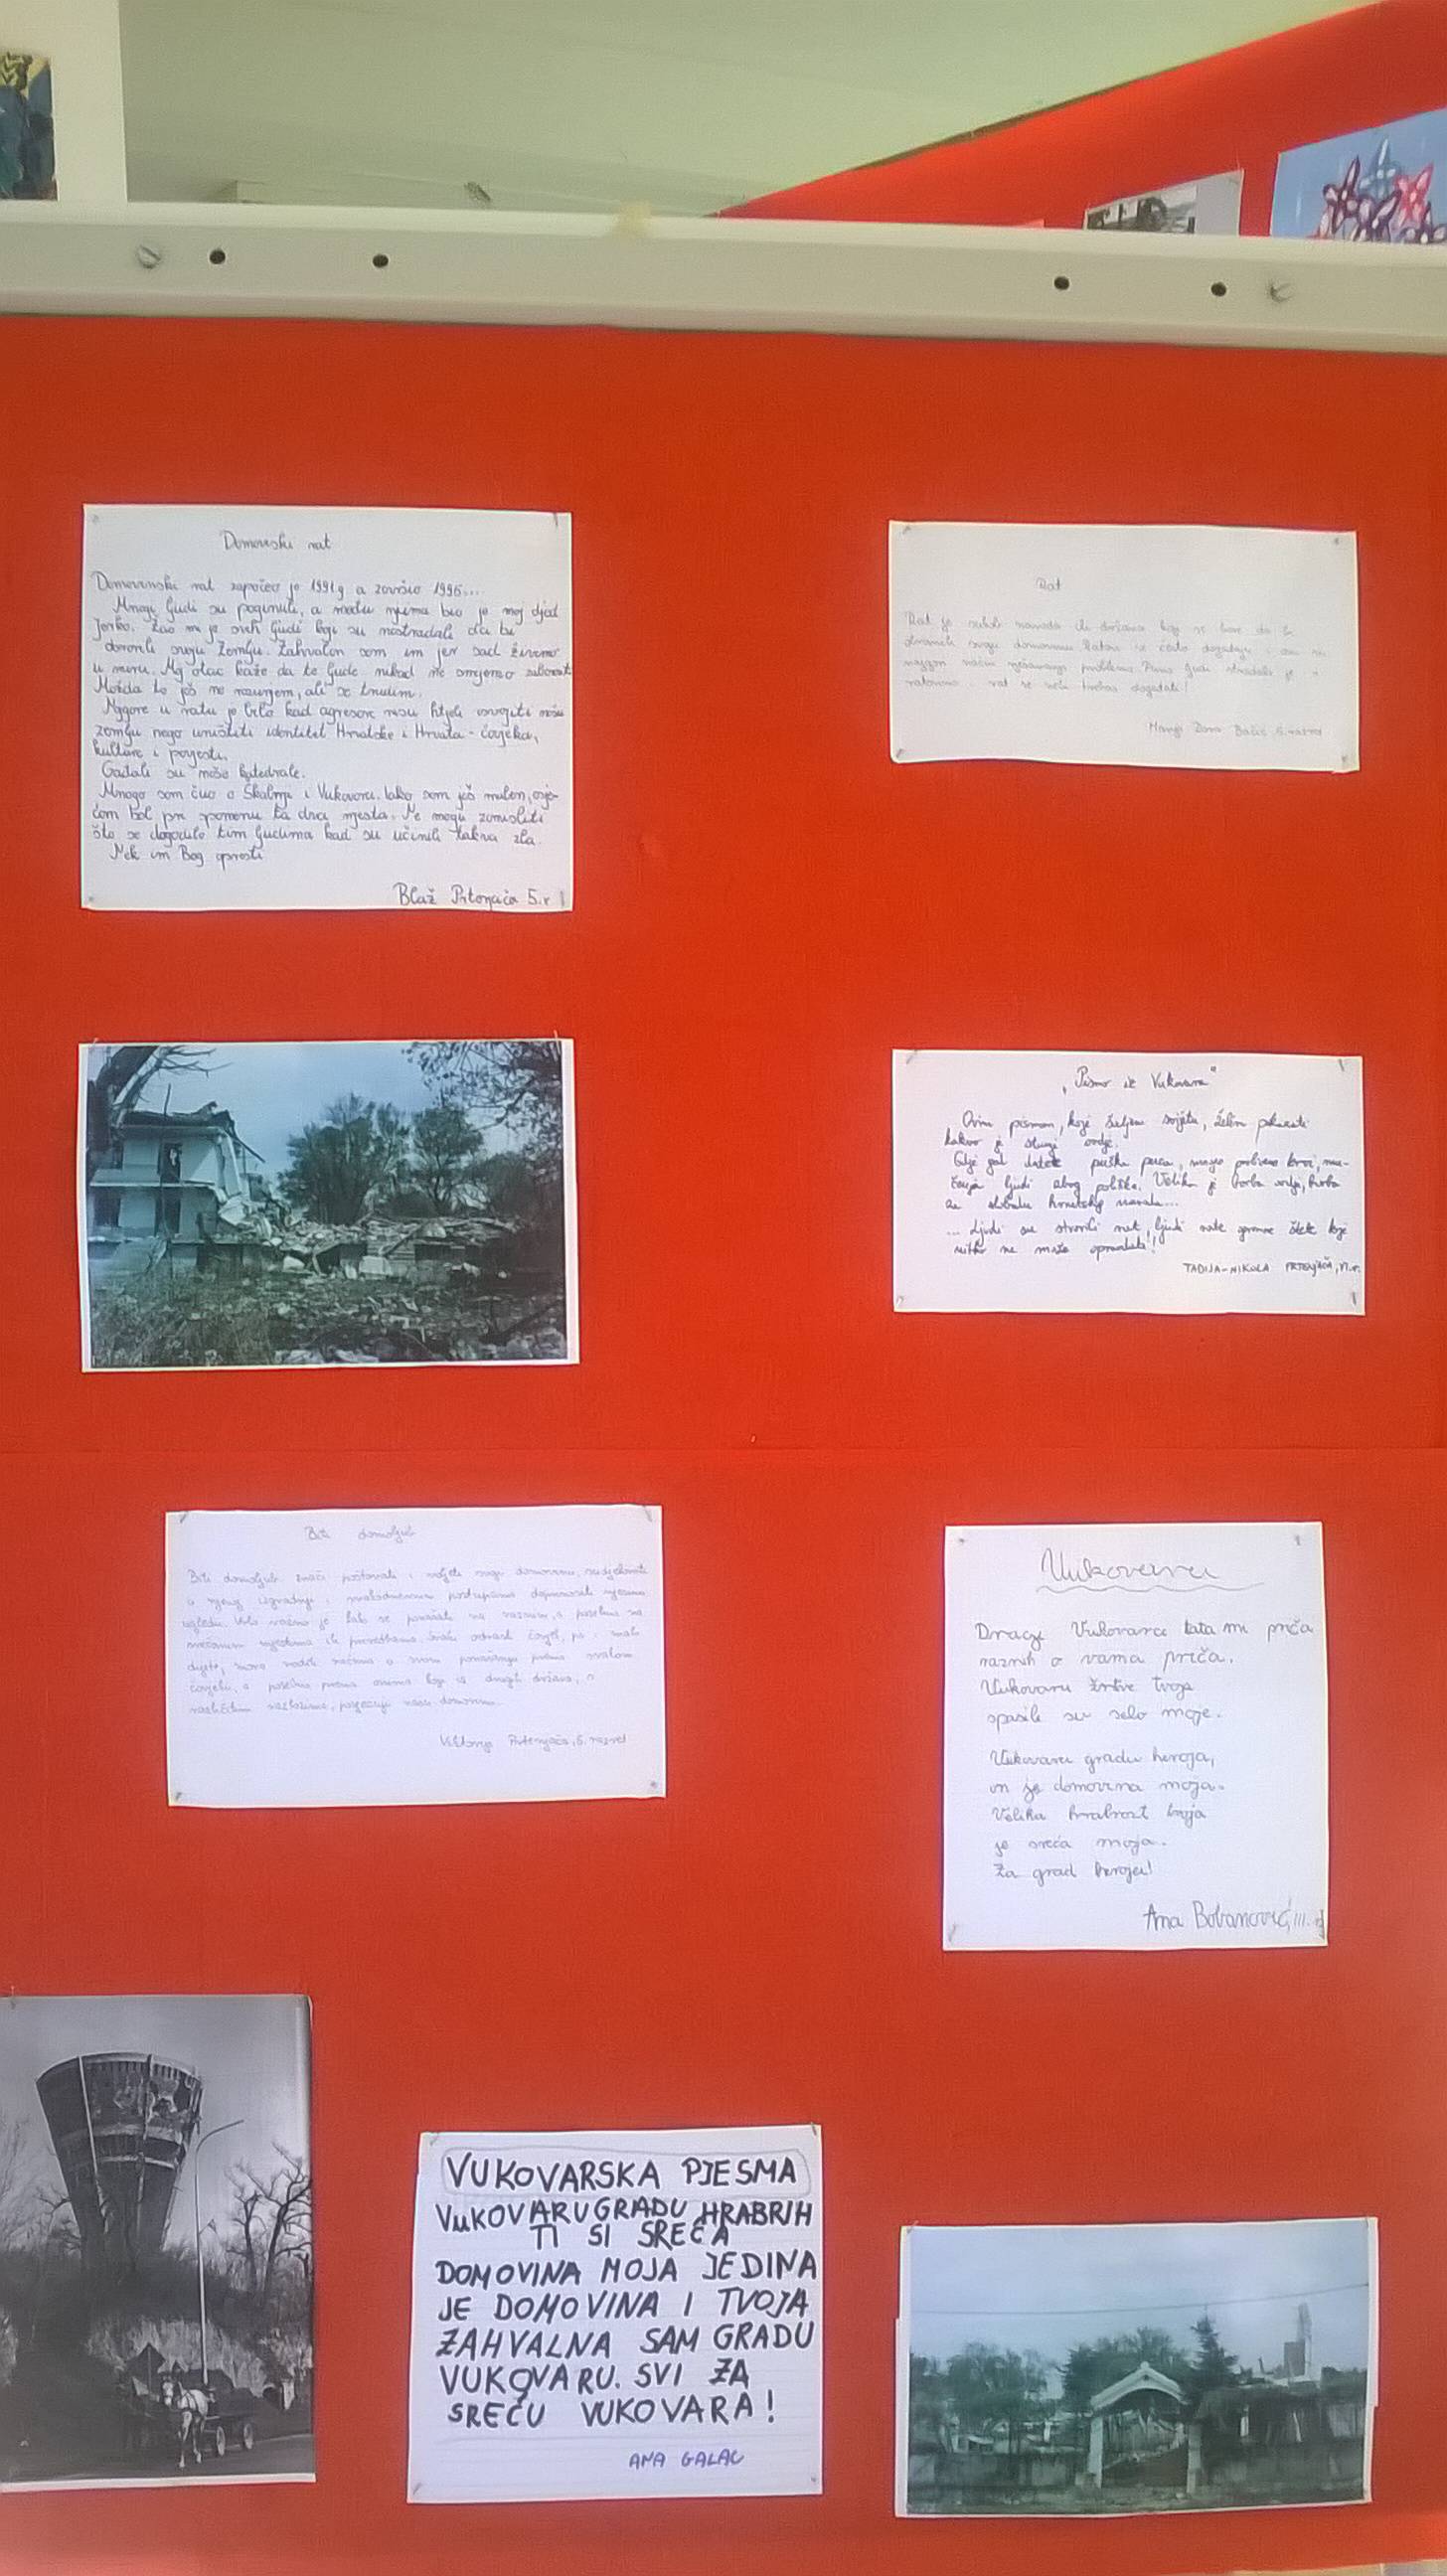 Domovinski rat
Domovinski rat započeo je 1991g a završio 1995...
Mnogi ljudi su poginuli, a među njima bio je moj djed
Jerko. Žao mi je svih ljudi koji su nastradali da bi
obranili svoju zemlju. Zahvalan sam im jer sad živimo
u miru. Moj otac kaže da te ljude nikad ne smijemo zaboravit
Možda to još ne razumijem, ali se trudim.
Najgore u ratu je bilo kad agresori nisu htjeli osvojiti našu
zemlju nego uništiti identitet Hrvatske i Hrvata - čovjeka,
kulture i povijesti.
Gađali su naše katedrale.
Mnogo sam čuo o Škabrnji i Vukovaru. Iako sam još malen, osje-
ćam bol pri spomenu ta dva mjesta. Ne mogu zamisliti
što se dogodilo tim ljudima kad su učinili takva zla.
Nek im Bog oprosti
Blaž Prtenjača 5.r
Rat
Rat je sukob naroda ili država koji se bore da bi
obranili svoju domovinu. Ratovi se često događaju i oni su
način rješavanja problema. Puno ljudi stradalo je u
ratovima i rat se neće trebao događati!
Marija Dora 5. razred
„Pismo iz Vukovara"
Ovim pismom, koje šaljem svijetu, želim pokazati
kakvo je stanje ovdje.
Gdje god dođete puška puca, mnogo prolivene krvi, mu-
čenja ljudi zbog politike. Velika je borba ovdje, borba
za slobodu hrvatskog naroda...
... Ljudi su stvorili rat, ljudi rade ogromne štete koje
nitko ne može opravdati!!
TADIJA-NIKOLA PRTENJAČA, VI.r.
Biti domoljub
Biti domoljub znači poštovati i voljeti svoju domovinu, sudjelovati
u njenoj izgradnji i svakodnevnim postupcima doprinositi njezinu
ugledu. Vrlo važno je kako se ponašati na raznim, a posebno na
svečanim mjestima ili priredbama. Svaki odrasli čovjek, pa i malo
dijete, mora voditi računa o svom ponašanju prema svakom
čovjeku, a posebno prema onima koji iz drugih država, s
različitim razlozima, posjećuju našu domovinu.
Viktorija Prtenjača, 5. razred
Vukovaru
Dragi Vukovaru tata mi priča
raznih o vama priča.
Vukovaru žrtve tvoje
spasile su selo moje.
Vukovaru gradu heroja,
on je domovina moja.
Velika hrabrost tvoja
je sreća moja.
Za grad heroja!
Ana Bobanović, III. r
VUKOVARSKA PJESMA
VUKOVARU GRADU HRABRIH
TI SI SREĆA
DOMOVINA MOJA JEDINA
JE DOMOVINA I TVOJA
ZAHVALNA SAM GRADU
VUKOVARU. SVI ZA
SREĆU VUKOVARA!
ANA GALAC